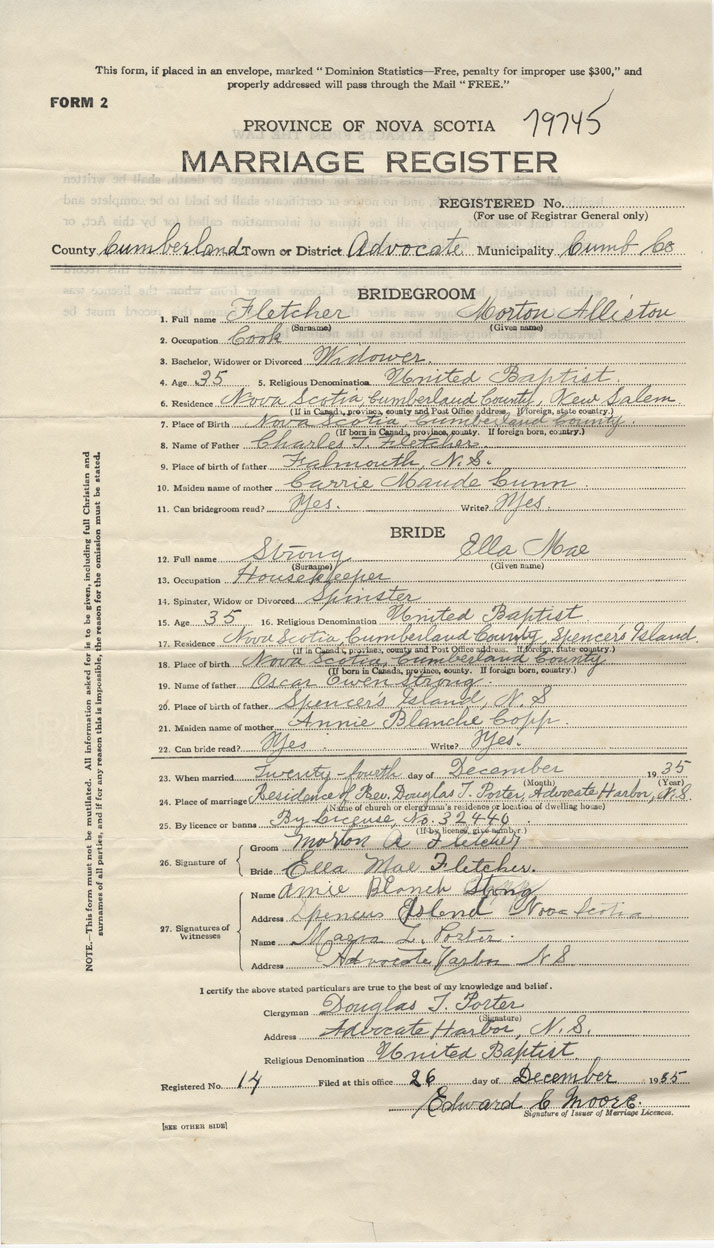 This form, if placed in an envelope, marked "Dominion Statistics—Free, penalty for improper use $300," and
properly addressed will pass through the Mail "FREE."
FORM 2
PROVINCE OF NOVA SCOTIA 79745
MARRIAGE REGISTER
REGISTERED No.
(For use of Registrar General only)
County Cumberland Town or District Advocate Municipality Cumb Co
BRIDEGROOM
1. Full name Fletcher Morton Alliston
(Surname) (Given name)
2. Occupation Cook
3. Bachelor, Widower or Divorced Widower
4. Age 35 5. Religious Denomination United Baptist
6. Residence Nova Scotia, Cumberland County, New Salem
(If in Canada, province, county and Post Office address. If foreign, state country.)
7. Place of Birth Nova Scotia, Cumberland County.
(If born in Canada, province, county. If foreign born, country.)
8. Name of Father Charles T. Fletcher
9. Place of birth of father Falmouth, N.S.
10. Maiden name of mother Carrie Maude Lunn
11. Can bridegroom read? Yes. Write? Yes.
BRIDE
12. Full name Strong Ella Mae
(Surname) (Given name)
13. Occupation Housekeeper
14. Spinster, Widow or Divorced Spinster
15. Age 35 16. Religious Denomination United Baptist
17. Residence Nova Scotia, Cumberland County, Spencer's Island
(If in Canada, province, county and Post Office address. If foreign, state country.)
18. Place of birth Nova Scotia, Cumberland County
(If born in Canada, province, county. If foreign born, country.)
19. Name of father Oscar Owen Strong
20. Place of birth of father Spencer's Island, N.S
21. Maiden name of mother Annie Blanche Copp.
22. Can bride read? Yes Write? Yes.
23. When married Twenty-fourth day of December 1935
(Month) (Year)
24. Place of marriage Residence of Rev. Douglas T. Porter, Advocate Harbor, N.S.
(Name of church or clergyman's residence or location of dwelling house)
25. By licence or banns By License, No. 32440
(If by licence, give number)
26. Signature of
Groom Morton A Fletcher
Bride Ella Mae Fletcher.
27. Signatures of Witnesses
Name Annie Blanch Strong
Address Spencers Island Nova Scotia
Name L. Porter.
Address Advocate Harbor N S
I certify the above stated particulars are true to the best of my knowledge and belief.
Clergyman Douglas T. Porter
(Signature)
Address Advocate Harbor, N.S.
Religious Denomination United Baptist
Registered No. 14 Filed at this office 26 day of December 1935
Edward C Moore.
Signature of Issuer of Marriage Licences.
[SEE OTHER SIDE]
NOTE.—This form must not be mutilated. All information asked for is to be given, including full Christian and
surnames of all parties, and if for any reason this is impossible, the reason for the omission must be stated.